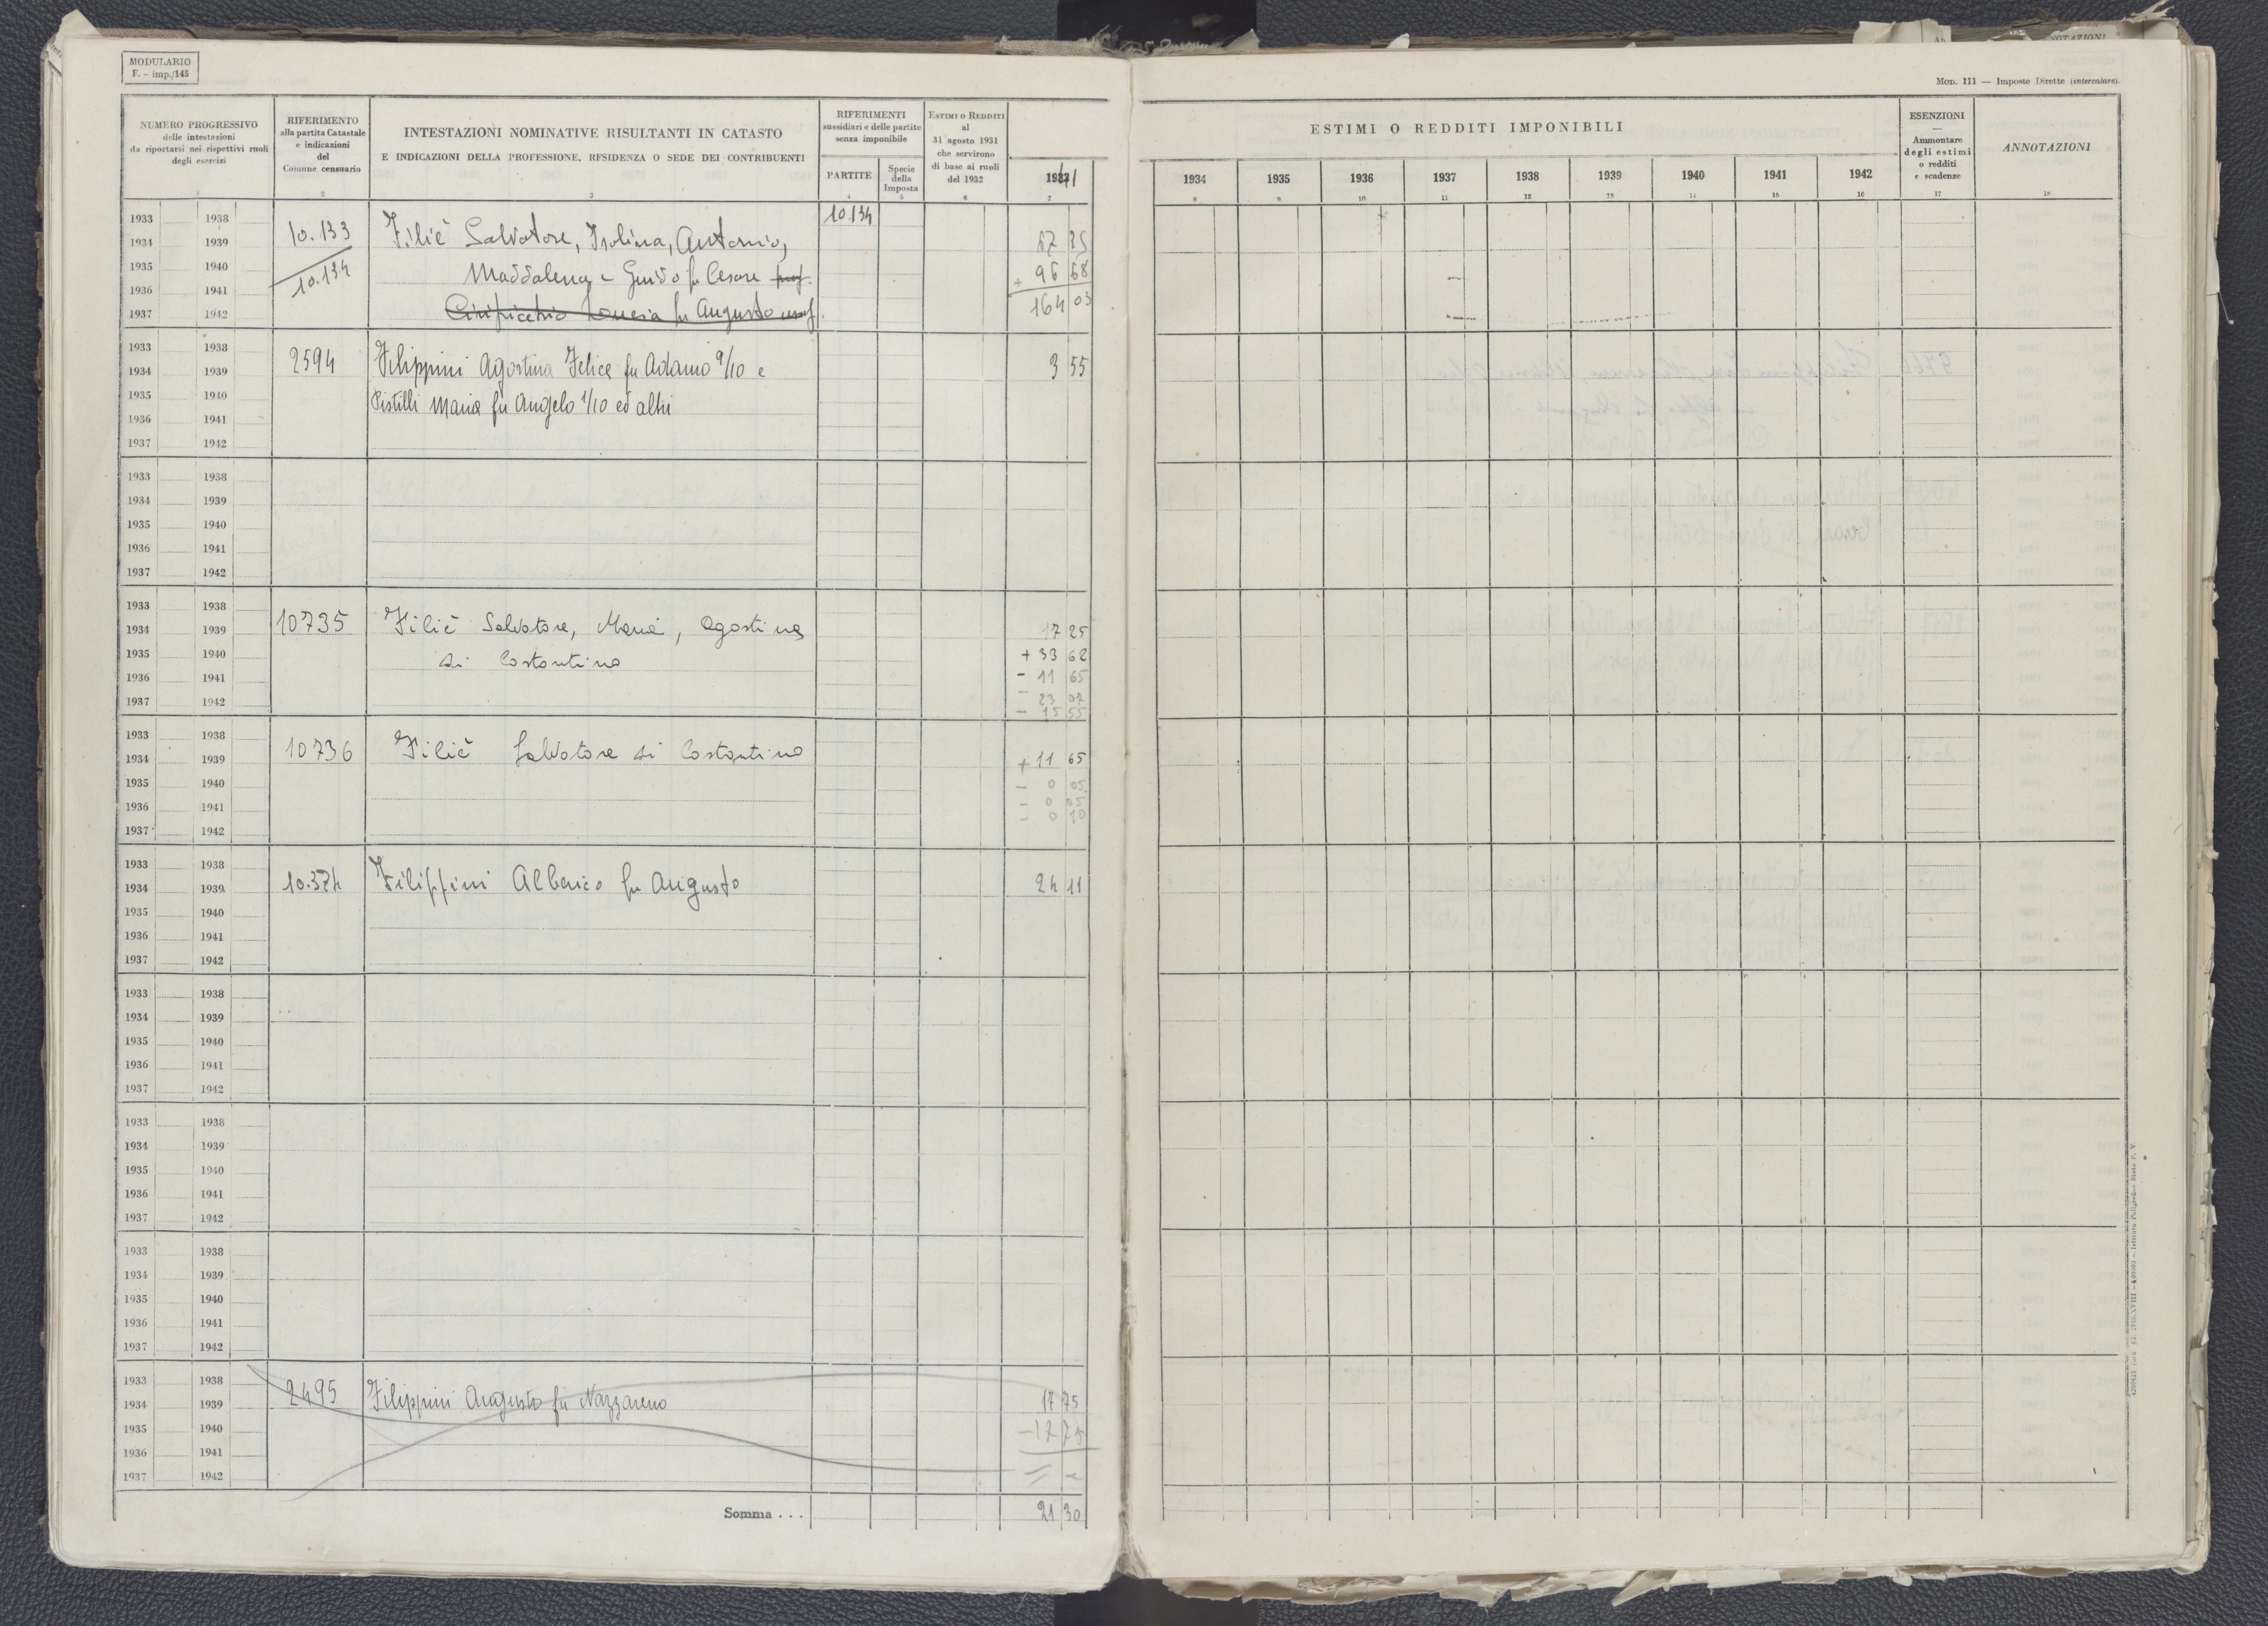 MODULARIO
F. - imp./145
Mod. 111 — Imposte Dirette (intercalare).
NUMERO PROGRESSIVO
delle intestazioni
da riportarsi nei rispettivi ruoli
degli esercizi
1
RIFERIMENTO
alla partita Catastale
e indicazioni
del
Comune censuario
2
INTESTAZIONI NOMINATIVE RISULTANTI IN CATASTO
E INDICAZIONI DELLA PROFESSIONE, RESIDENZA O SEDE DEI CONTRIBUENTI
3
RIFERIMENTI
sussidiari e delle partite
senza imponibile
PARTITE
4
Specie
della
Imposta
5
Estimi o Redditi
al
31 agosto 1931
che servirono
di base ai ruoli
del 1932
6
7
ESTIMI O REDDITI IMPONIBILI
1934 1935 1936 1937 1938 1939 1940 1941 1942
8 9 10 11 12 13 14 15 16
ESENZIONI
—
Ammontare
degli estimi
o redditi
e scadenze
17
ANNOTAZIONI
18
1933 1938 10.134
1934 1939 10.133 Filiè Salvatore, Isolina, Antonio,
1935 1940 10.134 Maddalena e Guido fu Cesare prop. + 96 68
1936 1941 164 03
1937 1942 fu Augusto usuf.
1933 1938
1934 1939 2594 Filippini Agostina Felice fu Adamo 9/10 e 3 55
1935 1940 Pistilli Maria fu Angelo 1/10 ed altri
1936 1941
1937 1942
1933 1938
1934 1939
1935 1940
1936 1941
1937 1942
1933 1938
1934 1939 10735 Filiè Salvatore, Maria, Agostina 17 25
1935 1940 di Costantino + 33 62
1936 1941 - 11 65
1937 1942 - 23 07
- 15 55
1933 1938
1934 1939 10736 Filiè Salvatore di Costantino + 11 65
1935 1940 - 0 05
1936 1941 - 0 05
1937 1942 - 0 10
1933 1938
1934 1939 10.374 Filippini Alberico fu Augusto 24 11
1935 1940
1936 1941
1937 1942
1933 1938
1934 1939
1935 1940
1936 1941
1937 1942
1933 1938
1934 1939
1935 1940
1936 1941
1937 1942
1933 1938
1934 1939
1935 1940
1936 1941
1937 1942
1933 1938
1934 1939 2495 Filippini Augusto fu Nazzareno 17 75
1935 1940 - 17 75
1936 1941
1937 1942
Somma . . . 21 30